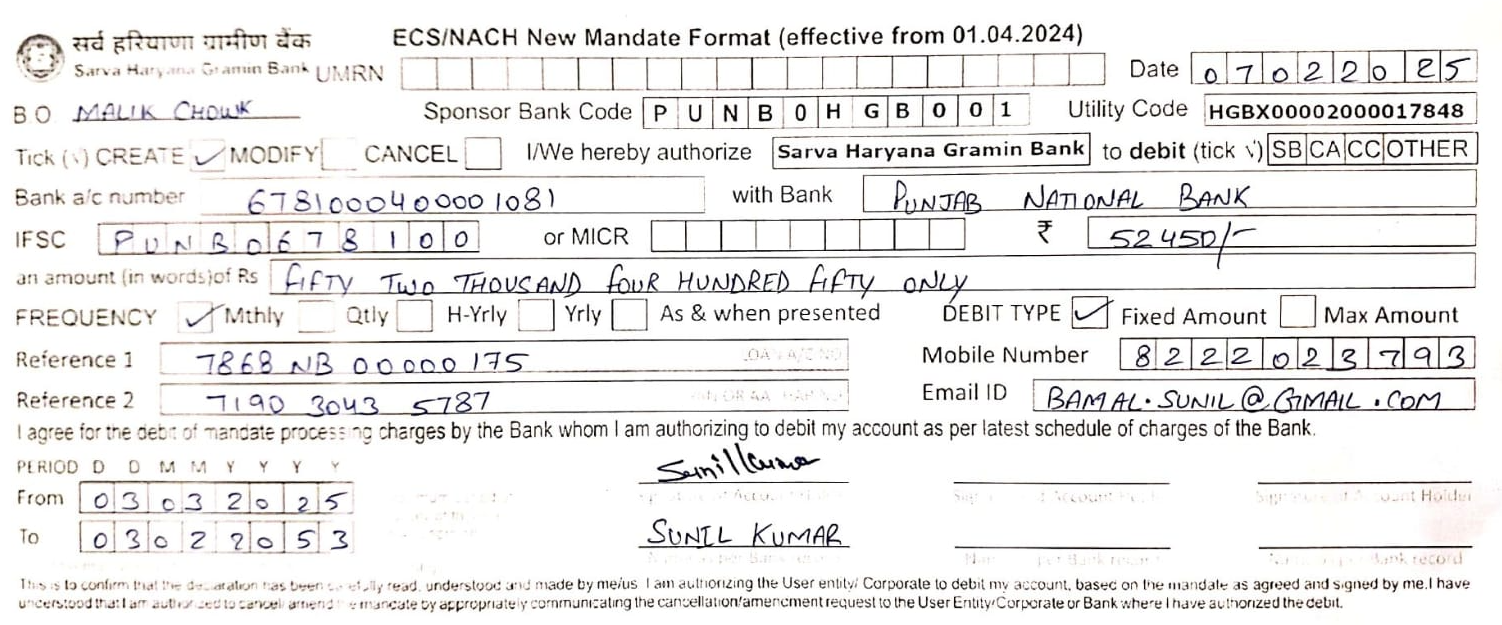 सर्व हरियाणा ग्रामीण बैंक ECS/NACH New Mandate Format (effective from 01.04.2024)
Sarva Haryana Gramin Bank UMRN Date 07022025
B.O MALIK CHOWK Sponsor Bank Code PUNB0HGB001 Utility Code HGBX00002000017848
Tick (√) CREATE ✓ MODIFY CANCEL I/We hereby authorize Sarva Haryana Gramin Bank to debit (tick √) SB CA CC OTHER
Bank a/c number 6781000400001081 with Bank PUNJAB NATIONAL BANK
IFSC PUNB0678100 or MICR ₹ 52450/-
an amount (in words) of Rs FIFTY TWO THOUSAND FOUR HUNDRED FIFTY ONLY
FREQUENCY ✓ Mthly Qtly H-Yrly Yrly As & when presented DEBIT TYPE ✓ Fixed Amount Max Amount
Reference 1 7868 NB 00000175 LOAN A/C NO Mobile Number 8222023793
Reference 2 7190 3043 5787 Email ID BAMAL.SUNIL@GMAIL.COM
I agree for the debit of mandate processing charges by the Bank whom I am authorizing to debit my account as per latest schedule of charges of the Bank.
PERIOD D D M M Y Y Y Y Sunil Kumar
From 03032025 Signature of Account Holder
To 03022053 SUNIL KUMAR
per Bank record Bank record
This is to confirm that the declaration has been carefully read, understood and made by me/us. I am authorizing the User entity/ Corporate to debit my account, based on the mandate as agreed and signed by me. I have
understood that I am authorized to cancel/amend the mandate by appropriately communicating the cancellation/amendment request to the User Entity/Corporate or Bank where I have authorized the debit.